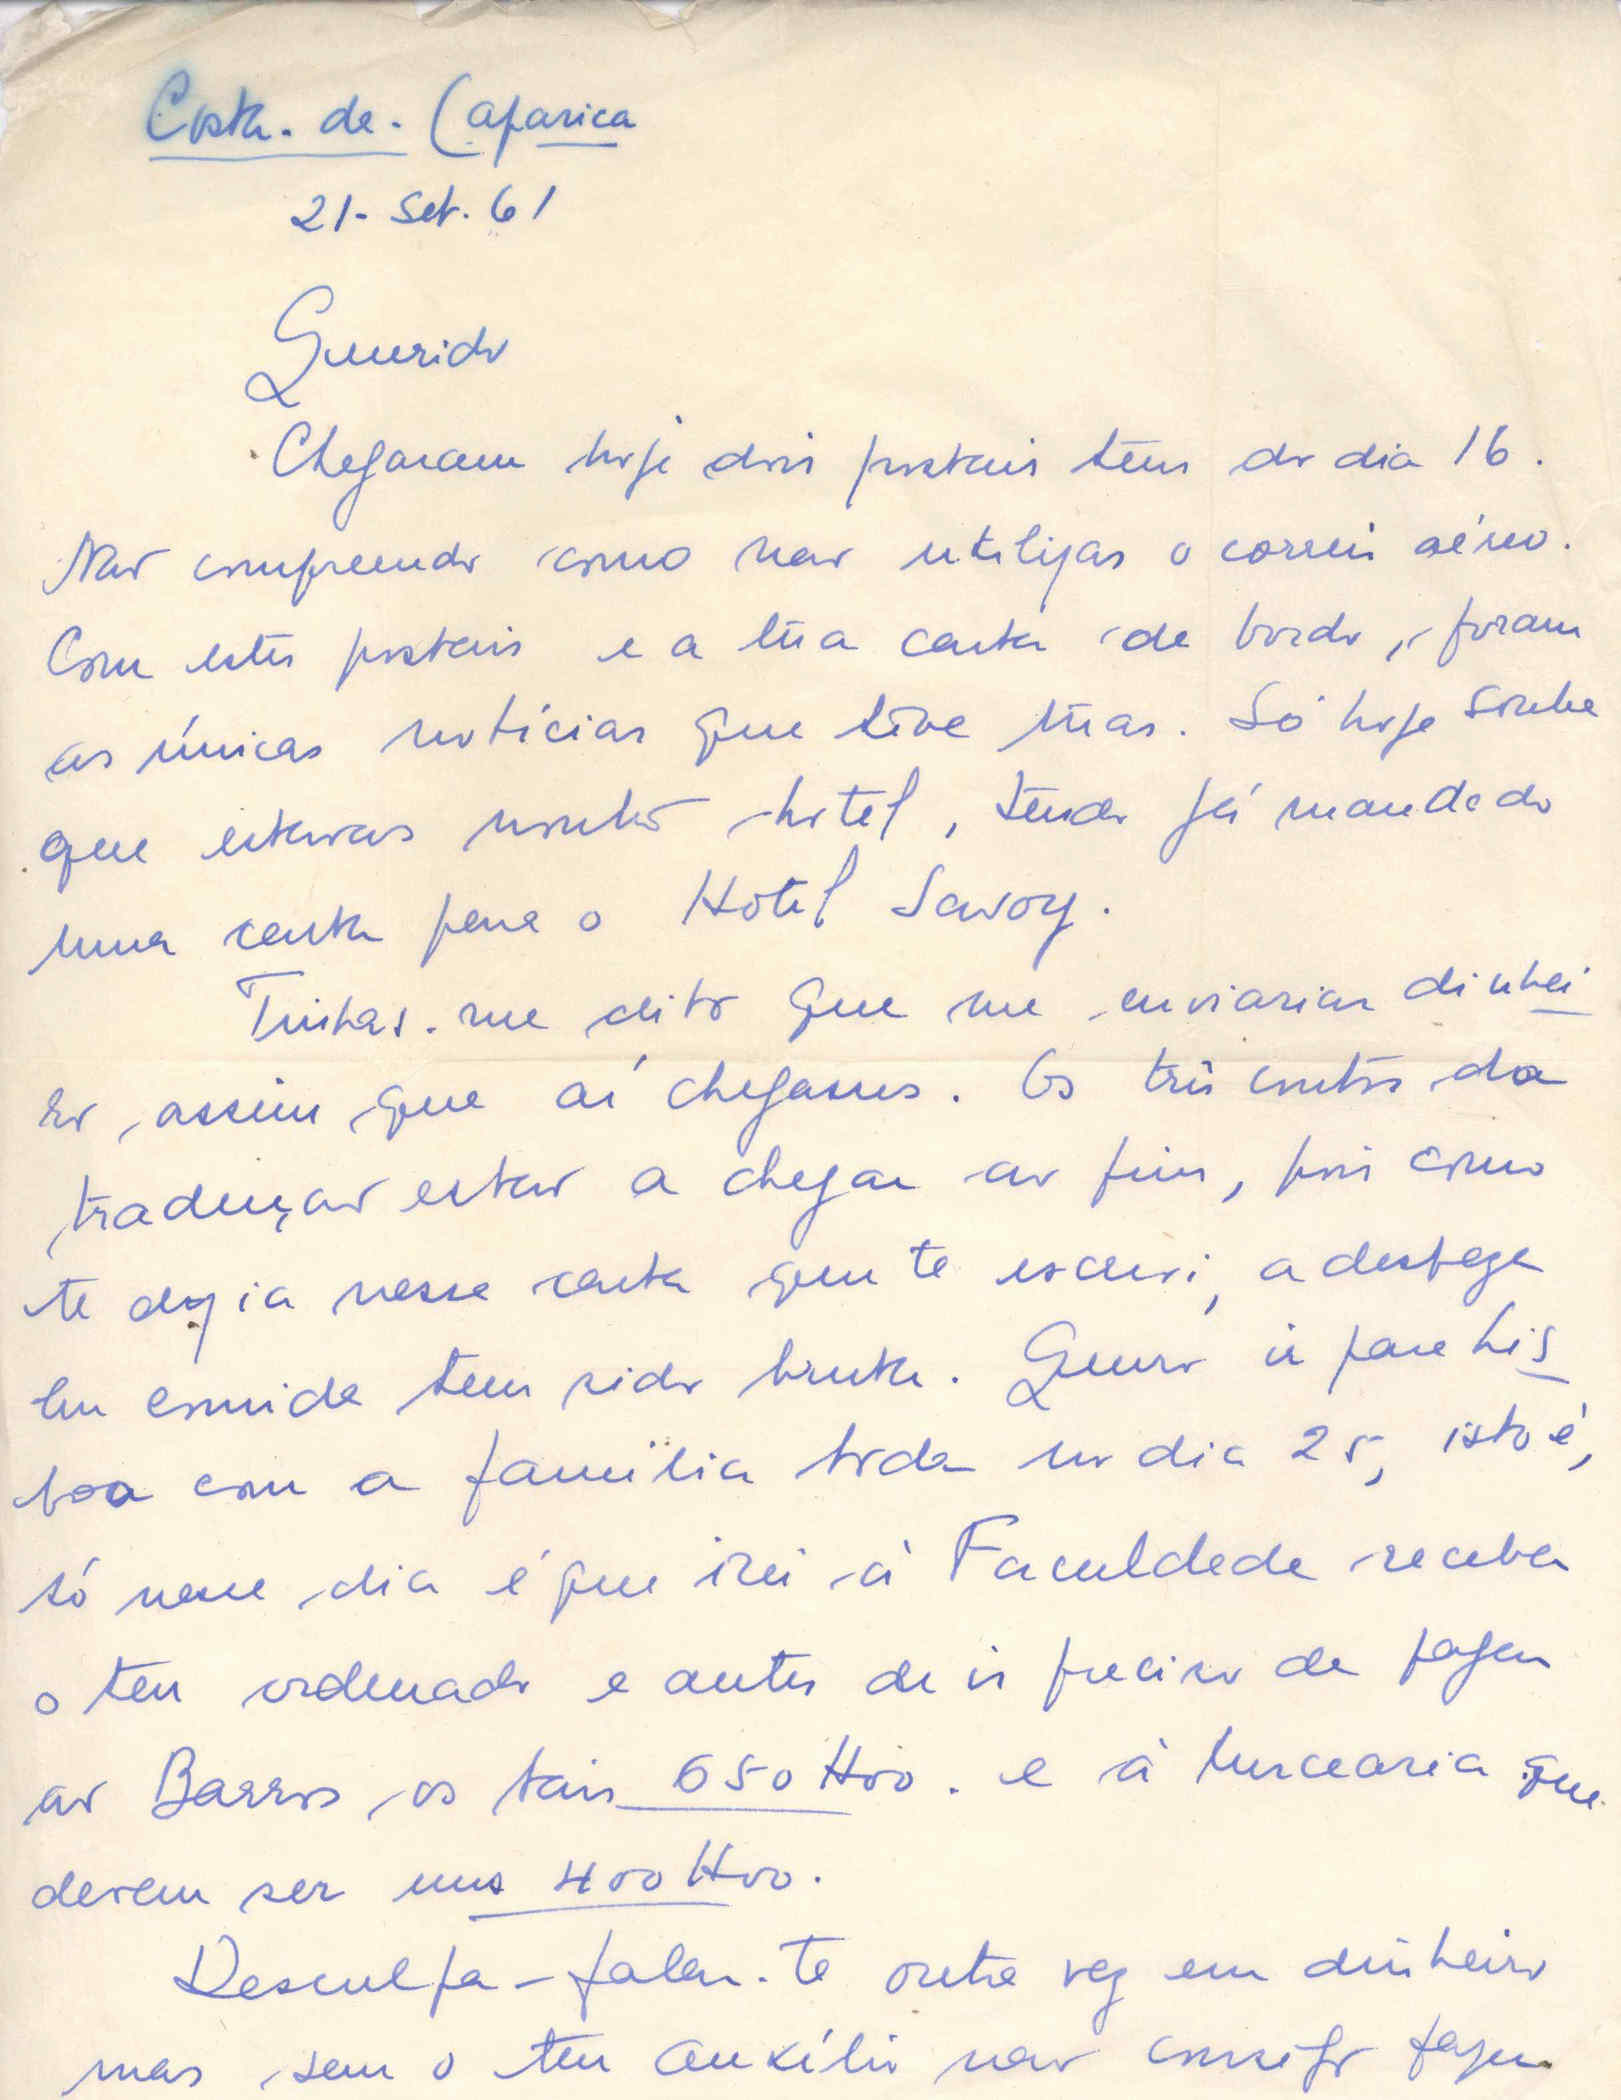 Costa. de. Caparica
21- Set. 61
Querido
Chegaram hoje dois postais teus do dia 16.
Não compreendo como não utilizas o correio aéreo.
Com estes postais e a tua carta de bordo, foram
as únicas notícias que tive tuas. Só hoje soube
que estavas noutro hotel, tendo já mandado
uma carta para o Hotel Savoy.
Tinhas-me dito que me enviarias dinhei
ro, assim que aí chegasses. Os três contos da
tradução estão a chegar ao fim, pois como
te dizia nessa carta que te escrevi, a despeza
em comida tem sido bruta. Quero ir para Lis
boa com a família toda no dia 25, isto é,
só nesse dia é que irei à Faculdade receber
o teu ordenado e antes de ir preciso de pagar
ao Barros os tais 650$00. e à mercearia que
devem ser uns 400$00.
Desculpa-falar-te outra vez em dinheiro
mas sem o teu auxílio não consigo fazer